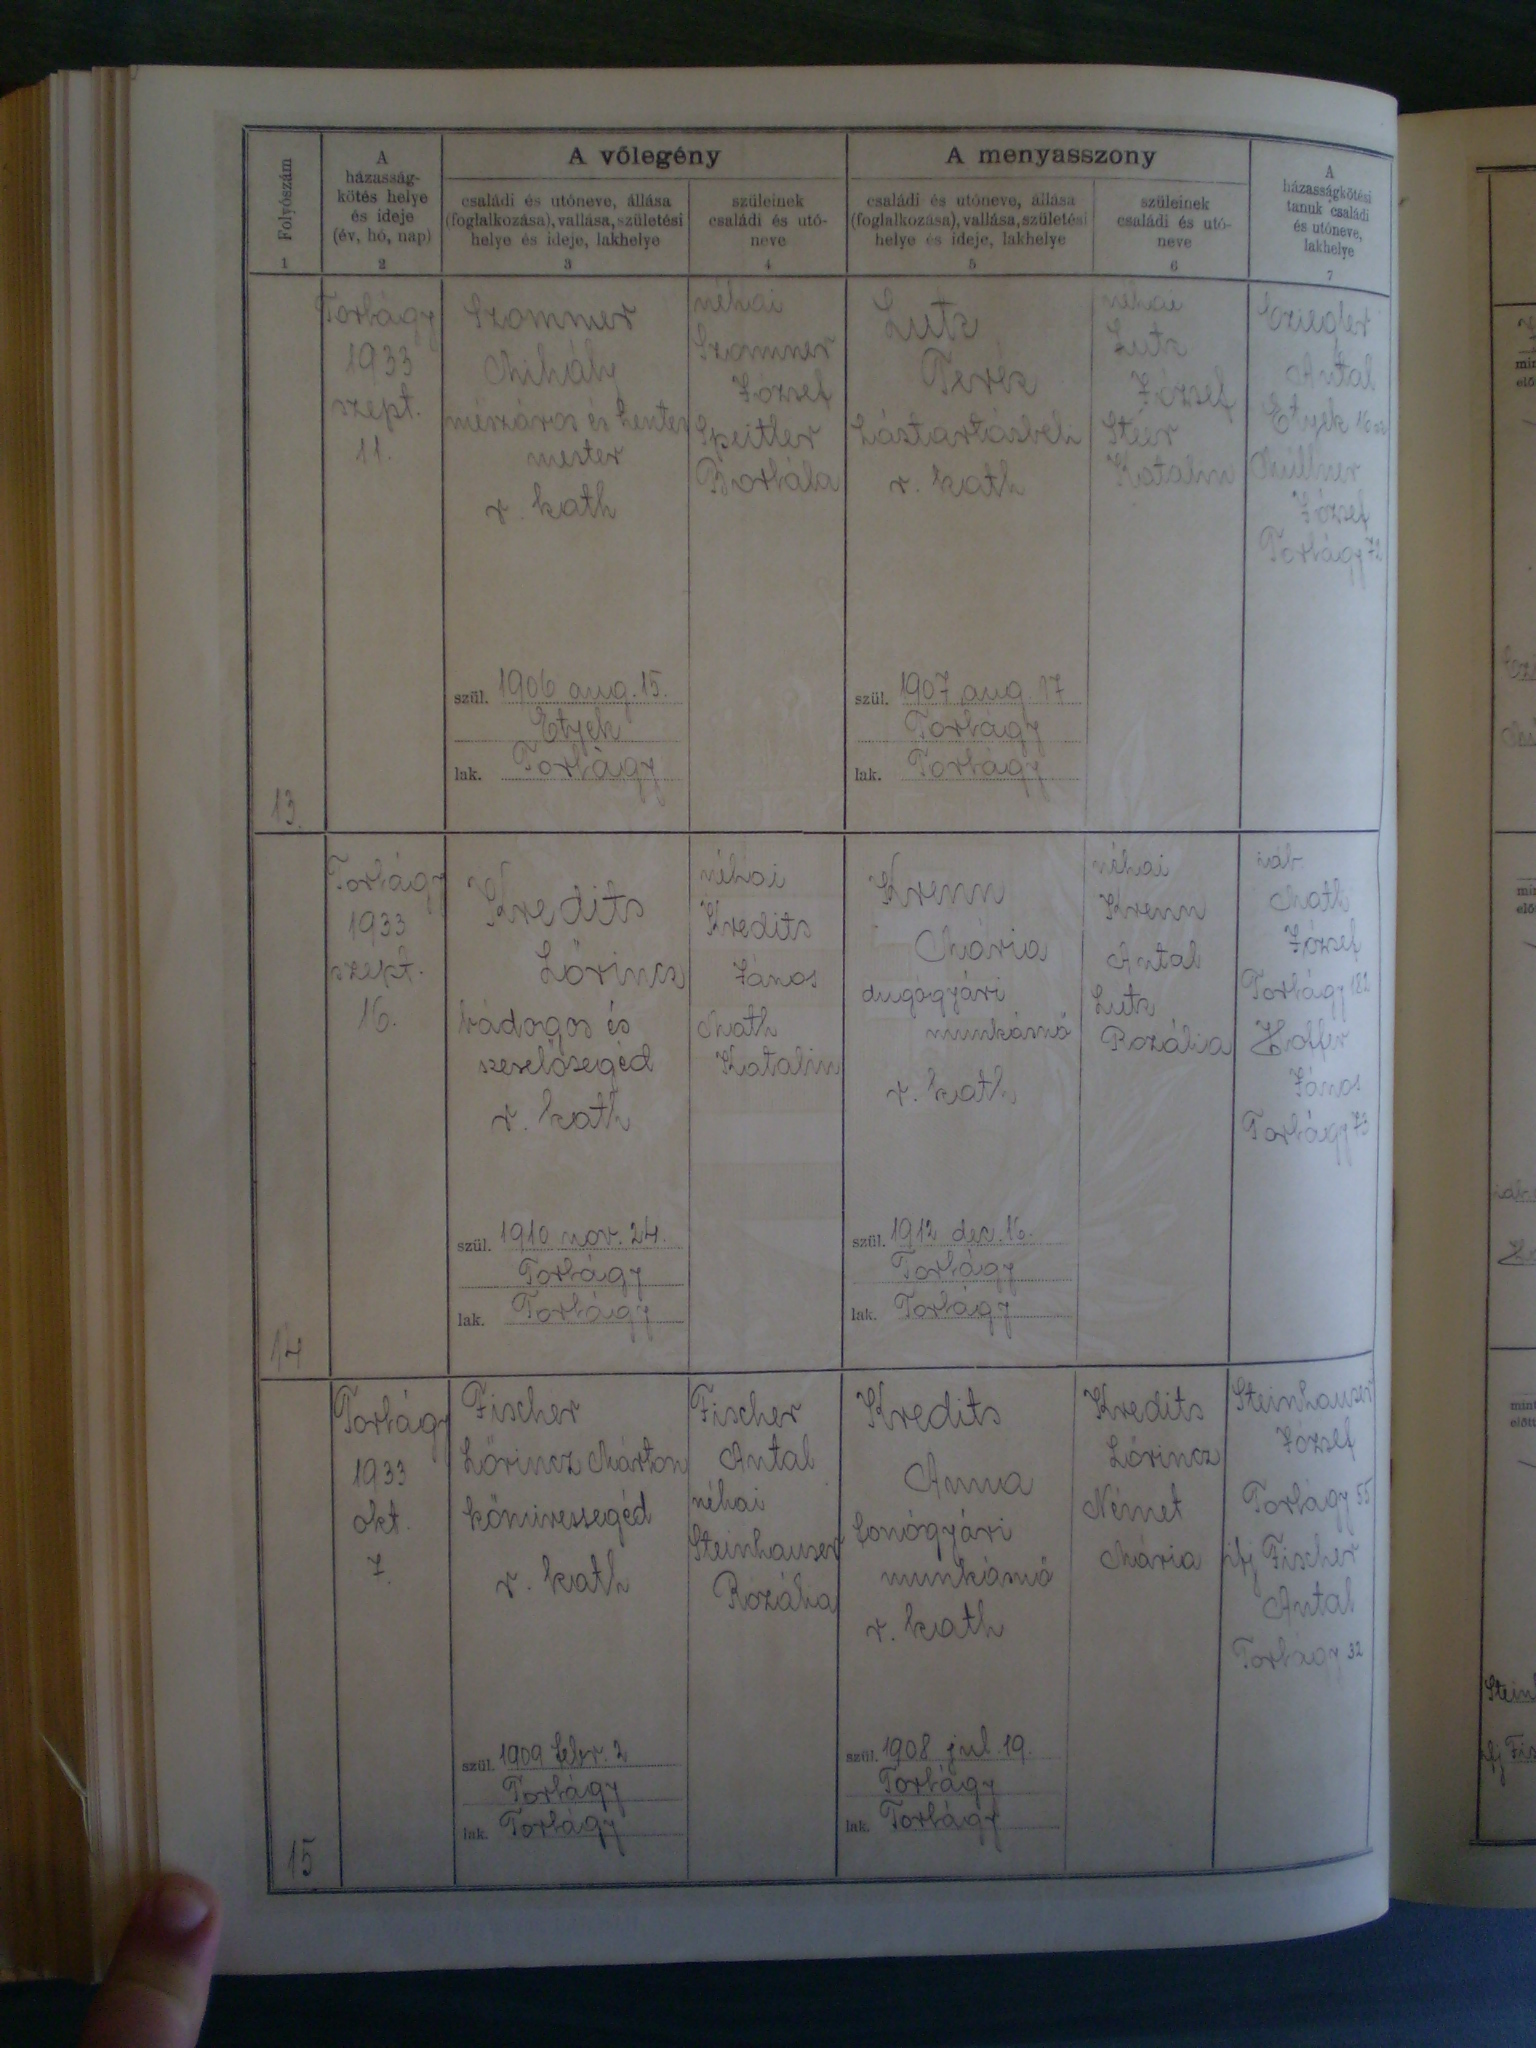 Folyószám
1
A
házasság-
kötés helye
és ideje
(év, hó, nap)
2
A vőlegény
családi és utóneve, állása
(foglalkozása), vallása, születési
helye és ideje, lakhelye
3
szüleinek
családi és utó-
neve
4
A menyasszony
családi és utóneve, állása
(foglalkozása), vallása, születési
helye és ideje, lakhelye
5
szüleinek
családi és utó-
neve
6
A
házasságkötési
tanuk családi
és utóneve,
lakhelye
7
13.
Torbágy
1933
szept.
11.
Szommer
Mihály
mészáros és hentes
mester
r. kath
szül. 1906 aug. 15.
Etyek
lak. Torbágy
néhai
Szommer
József
Speitler
Borbála
Lutz
Teréz
háztartásbeli
r. kath
szül. 1907 aug. 17
Torbágy
lak. Torbágy
néhai
Lutz
József
Steer
Katalin
Antal
Etyek
Müllner
József
Torbágy 72
14
Torbágy
1933
szept.
16.
Kredits
Lőrincz
bádogos és
szerelősegéd
r. kath
szül. 1910 nov. 24.
Torbágy
lak. Torbágy
néhai
Kredits
János
Math
Katalin
Krenn
Mária
dugógyári
munkásnő
r. kath
szül. 1912 dec. 16.
Torbágy
lak. Torbágy
néhai
Krenn
Antal
Lutz
Rozália
Math
József
Torbágy 182
Hoffer
János
Torbágy 73
15
Torbágy
1933
okt.
7.
Fischer
Lőrincz Márton
kőmívessegéd
r. kath
szül. 1909 febr. 2
Torbágy
lak. Torbágy
Fischer
Antal
néhai
Steinhauser
Rozália
Kredits
Anna
fonógyári
munkásnő
r. kath
szül. 1908 jul. 19.
Torbágy
lak. Torbágy
Kredits
Lőrincz
Német
Mária
Steinhauser
József
Torbágy 55
ifj Fischer
Antal
Torbágy 32